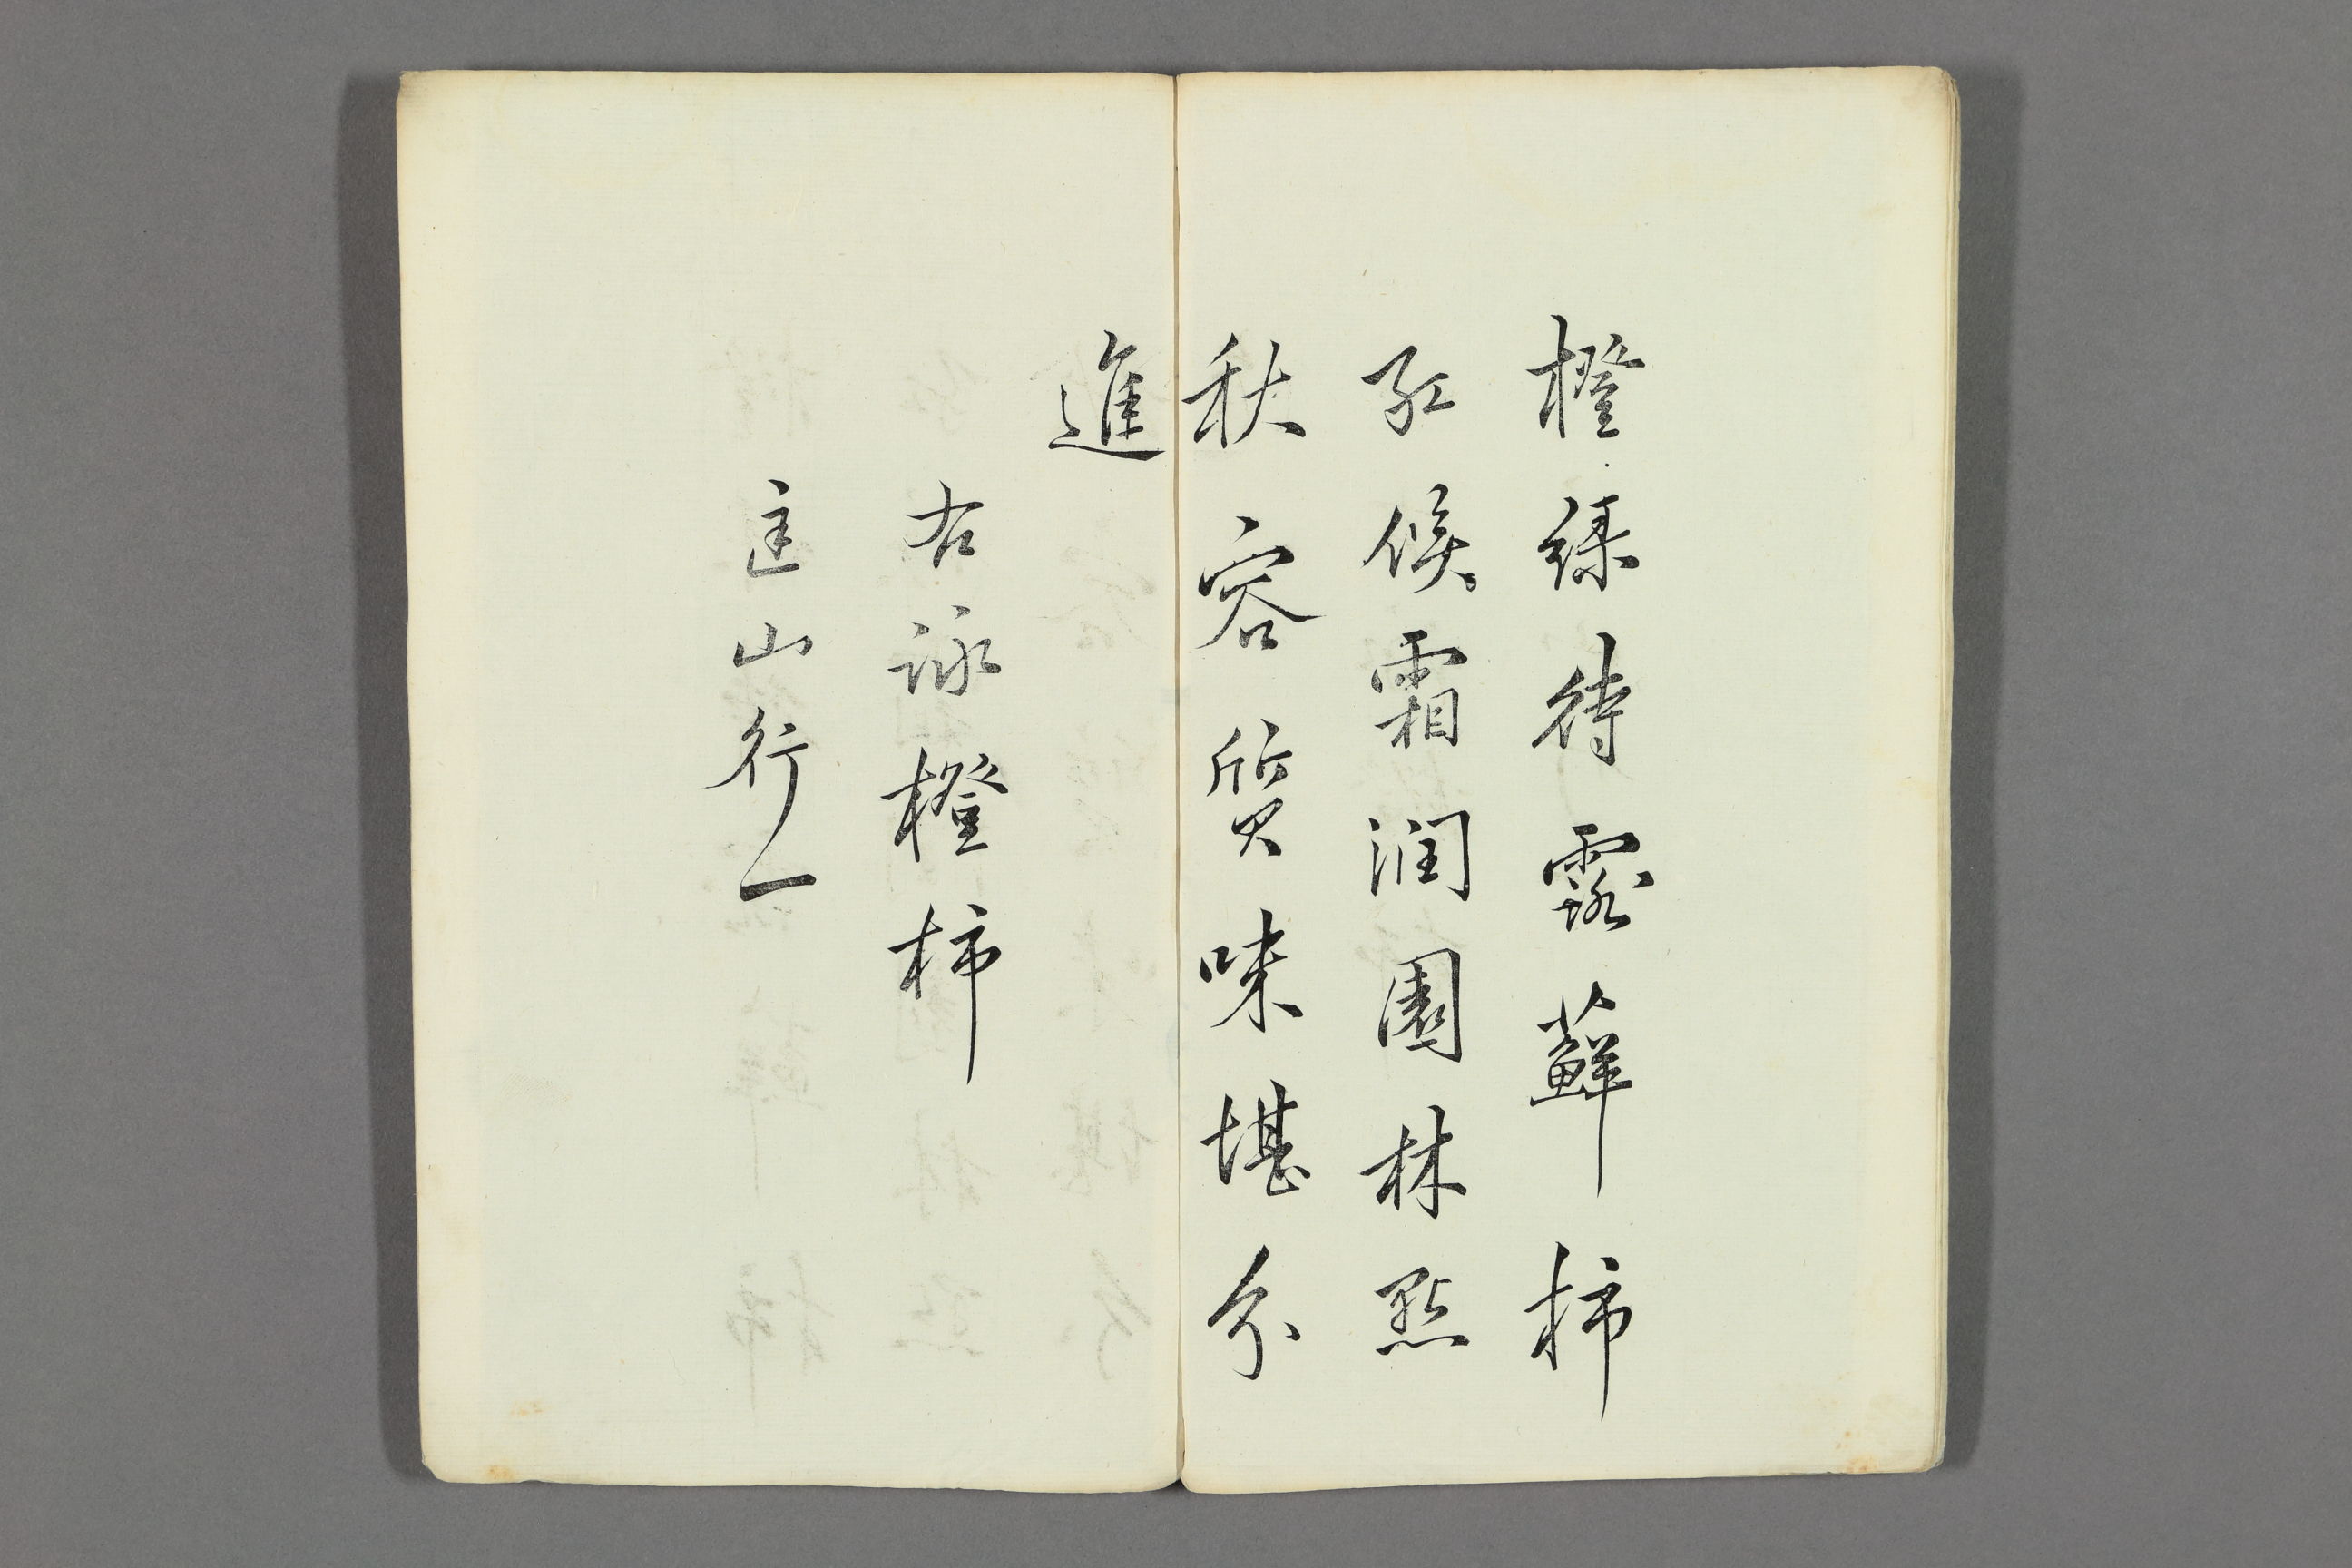 橙緑待露蘚柿
紅候霜潤園林點
秋容質味堪分
進
右詠橙柿
匡山行一